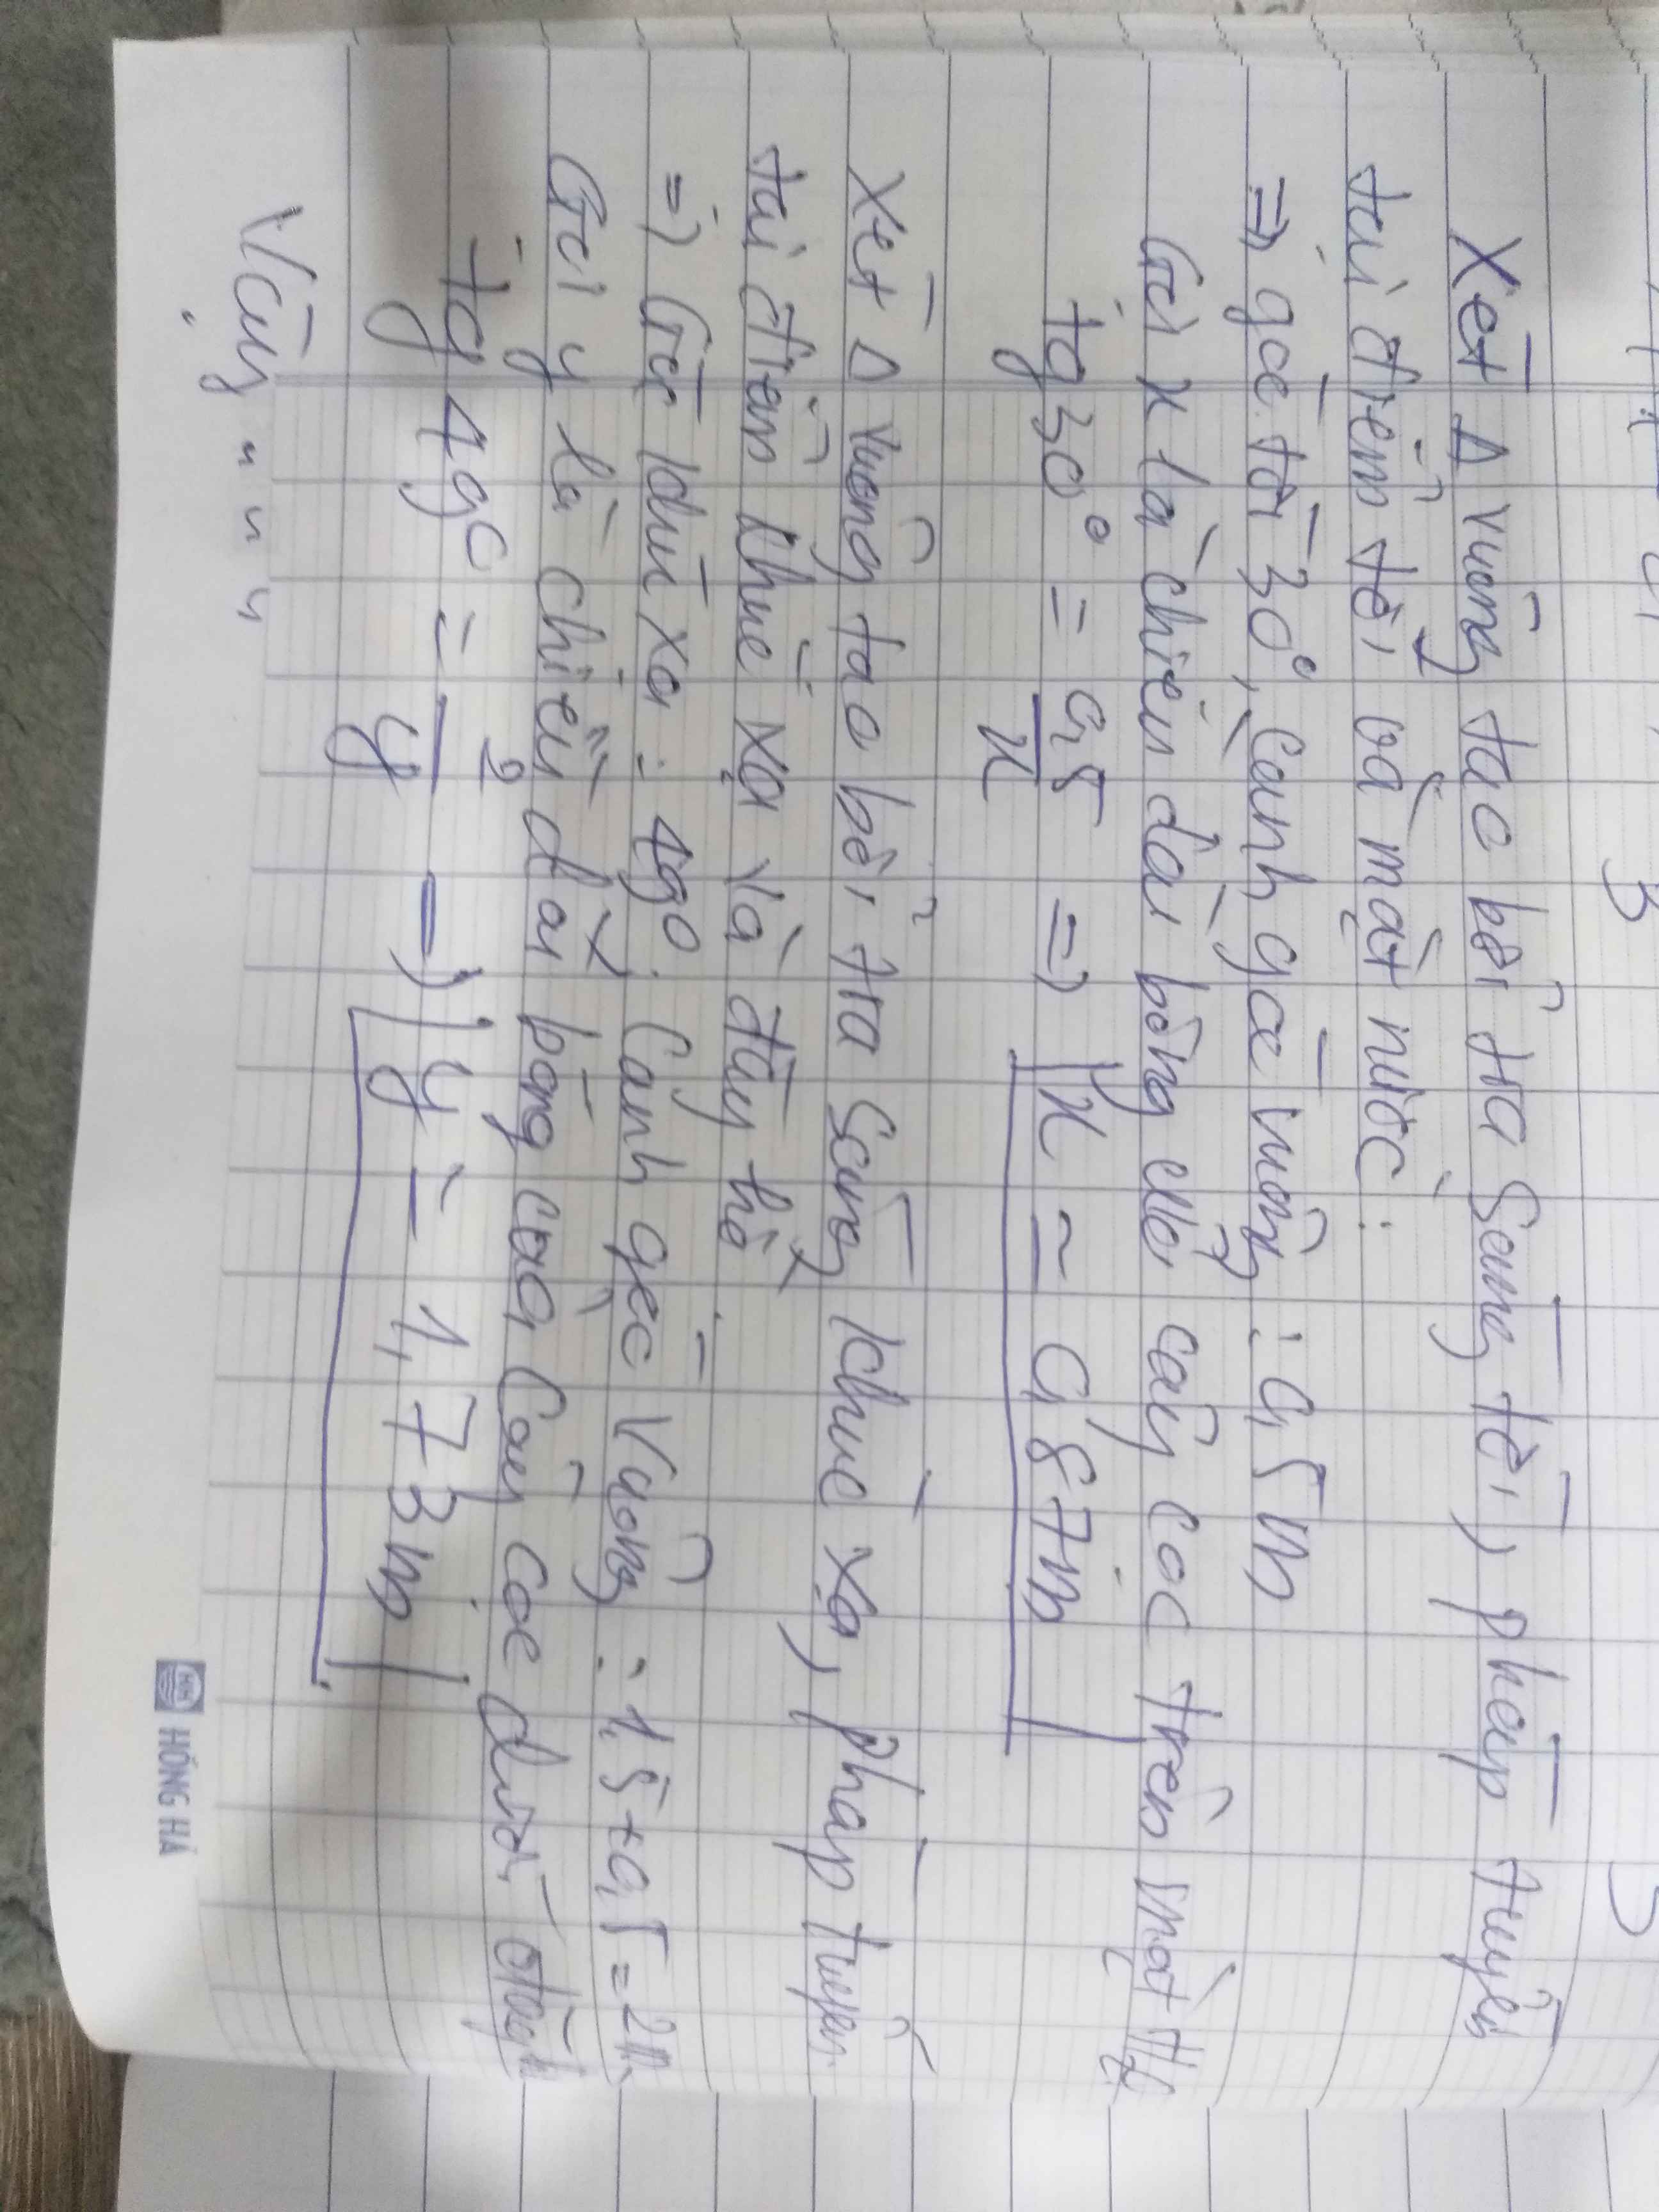 Xét Δ vuông tạo bởi tia sáng tới, pháp tuyến
tại điểm tới và mặt nước:
=> góc tới 30°, Cạnh góc vuông: 0,5m
Gọi x là chiều dài bóng của cây cọc trên mặt
tg 30° = 0,5 / x => x = 0,87m
Xét Δ vuông tạo bởi tia sáng khúc xạ, pháp tuyến
tại điểm khúc xạ và đáy hồ
=> Góc khúc xạ: 49°. Cạnh góc vuông: 1,5+0,5=2m
Gọi y là chiều dài bóng của cây cọc dưới đáy
tg 49° = 2 / y => y = 1,73m
Vậy " " "
HỒNG HÀ